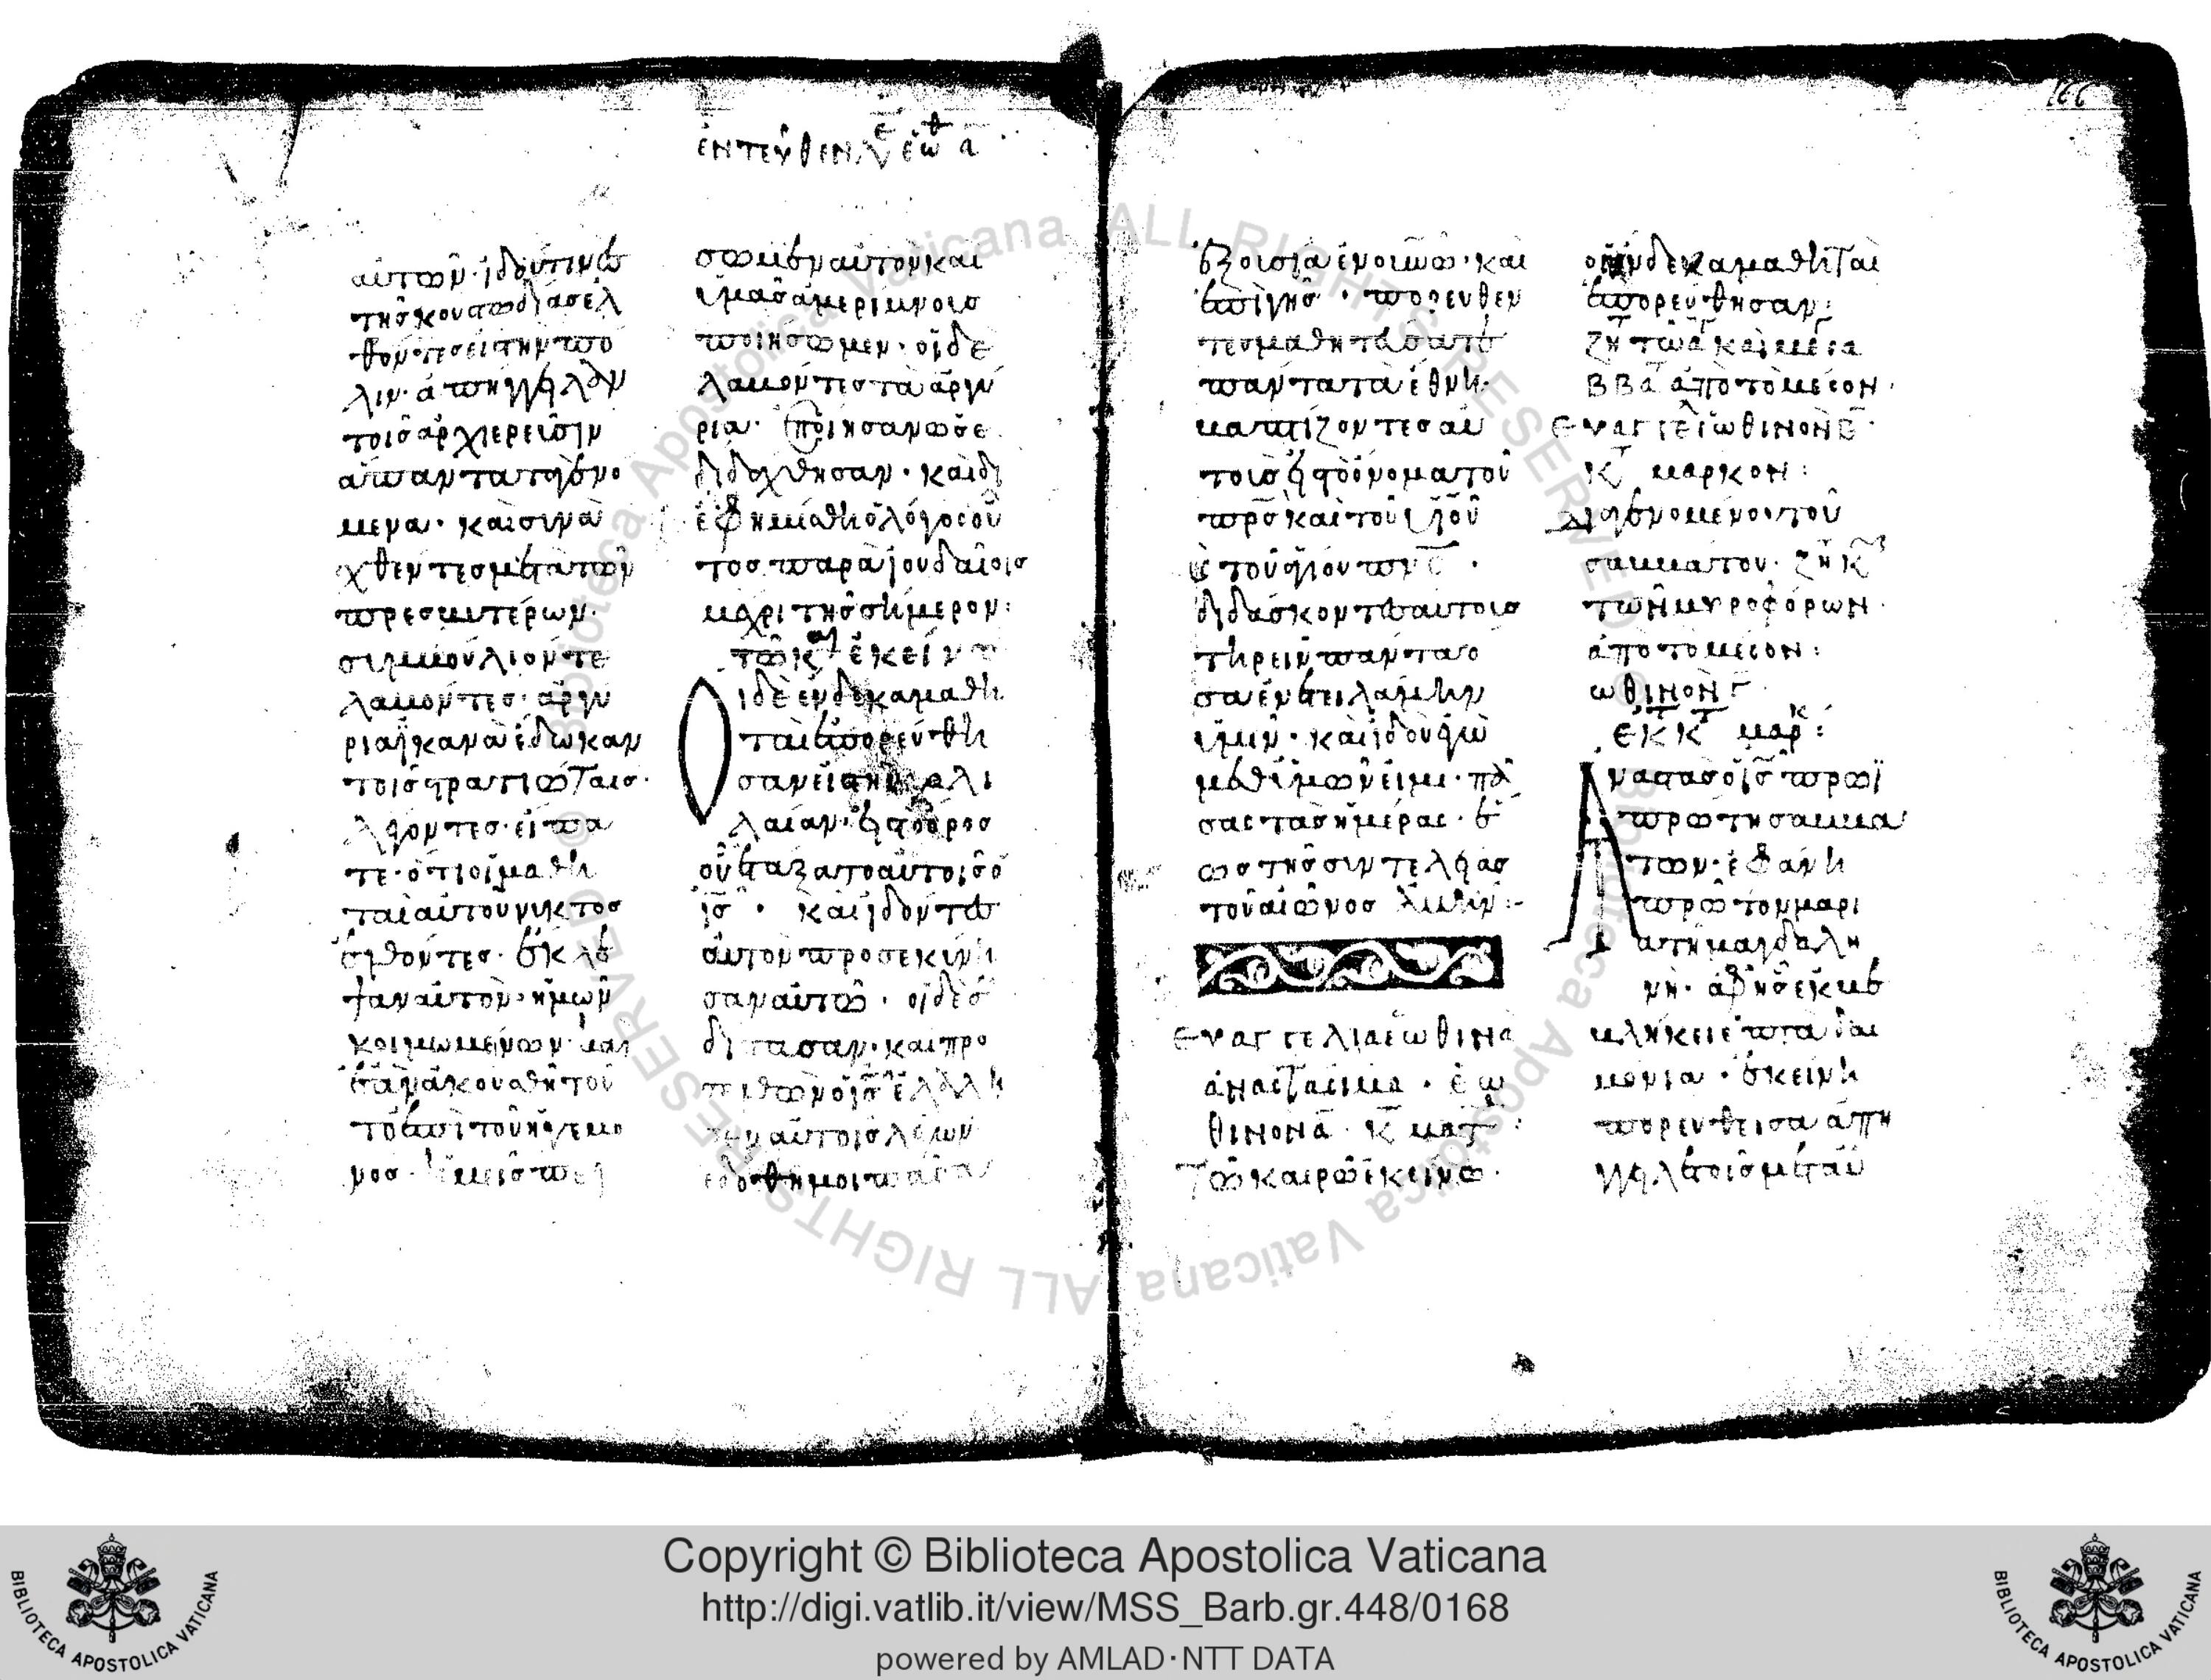 ἐντεῦθεν
αὐτῶν· ἰδού τινες
τῆς κουστωδίας ἐλ
θόντες εἰς τὴν πό
λιν· ἀπήγγειλαν
τοῖς ἀρχιερεῦσιν
ἅπαντα τὰ γενό
μενα· καὶ συνα
χθέντες μετὰ τῶν
πρεσβυτέρων·
συμβούλιόν τε
λαβόντες· ἀργύ
ρια ἱκανὰ ἔδωκαν
τοῖς στρατιώταις·
λέγοντες· εἴπα
τε· ὅτι οἱ μαθη
ταὶ αὐτοῦ νυκτὸς
ἐλθόντες· ἔκλε
ψαν αὐτὸν· ἡμῶν
κοιμωμένων· καὶ
ἐὰν ἀκουσθῆ τοῦ
το ἐπὶ τοῦ ἡγεμό
νος· ἡμεῖς πεί
σωμεν αὐτὸν καὶ
ὑμᾶς ἀμερίμνους
ποιήσωμεν· οἱ δὲ
λαβόντες τὰ ἀργύ
ρια· ἐποίησαν ὡς ἐ
διδάχθησαν· καὶ δι
εφημίσθη ὁ λόγος οὗ
τος παρὰ ἰουδαίοις
μέχρι τῆς σήμερον:
τῶ κ ἐκείνω
Οἱ δὲ ἕνδεκα μαθη
ταὶ ἐπορεύθη
σαν εἰς τὴν γαλι
λαίαν· εἰς τὸ ὄρος
οὗ ἐτάξατο αὐτοῖς ὁ
ἰς· καὶ ἰδόντες
αὐτὸν προσεκύνη
σαν αὐτῶ· οἱ δὲ ἐ
δίστασαν· καὶ προ
σελθὼν ὁ ἰς ἐλάλη
σεν αὐτοῖς λέγων·
ἐδόθη μοι πᾶσα
166
ἐξουσία ἐν οὐνῶ· καὶ
ἐπὶ γῆς· πορευθέν
τες μαθητεύσατε
πάντα τὰ ἔθνη·
βαπτίζοντες αὐ
τοὺς εἰς τὸ ὄνομα τοῦ
πρς καὶ τοῦ υἱοῦ
καὶ τοῦ ἁγίου πνς·
διδάσκοντες αὐτοὺς
τηρεῖν πάντα ὅ
σα ἐνετειλάμην
ὑμῖν· καὶ ἰδοὺ ἐγὼ
μεθ' ὑμῶν εἰμι· πά
σας τὰς ἡμέρας· ἕ
ως τῆς συντελείας
τοῦ αἰῶνος ἀμήν:-
Εὐαγγέλια ἑωθινὰ
ἀναστάσιμα· ἑω
θινὸν ᾱ· κ ματ:
Τῶ καιρῶ ἐκείνω·
οἱ ἕνδεκα μαθηταὶ
ἐπορεύθησαν:
ΒΒΑ ἀπὸ τὸ μέσον·
Εὐαγγελ ἑωθινὸν β·
κτ μάρκον:
Διαγενομένου τοῦ
σαββάτου· ζη κυ
τῶν μυροφόρων·
ἀπὸ τὸ μέσον:
ἑωθινὸν γ
ἐκ κτ μαρκ:
Ἀναστὰς ὁ ἰς πρωῒ
πρώτη σαββά
των· ἐφάνη
πρῶτον μαρί
α τῆ μαγδαλη
νῆ· ἀφ' ἧς ἐκβε
βλήκει ἑπτὰ δαι
μόνια· ἐκείνη
πορευθεῖσα ἀπή
γγειλε τοῖς μετ' αὐ
Copyright © Biblioteca Apostolica Vaticana
http://digi.vatlib.it/view/MSS_Barb.gr.448/0168
powered by AMLAD·NTT DATA
BIBLIOTECA APOSTOLICA VATICANA
BIBLIOTECA APOSTOLICA VATICANA